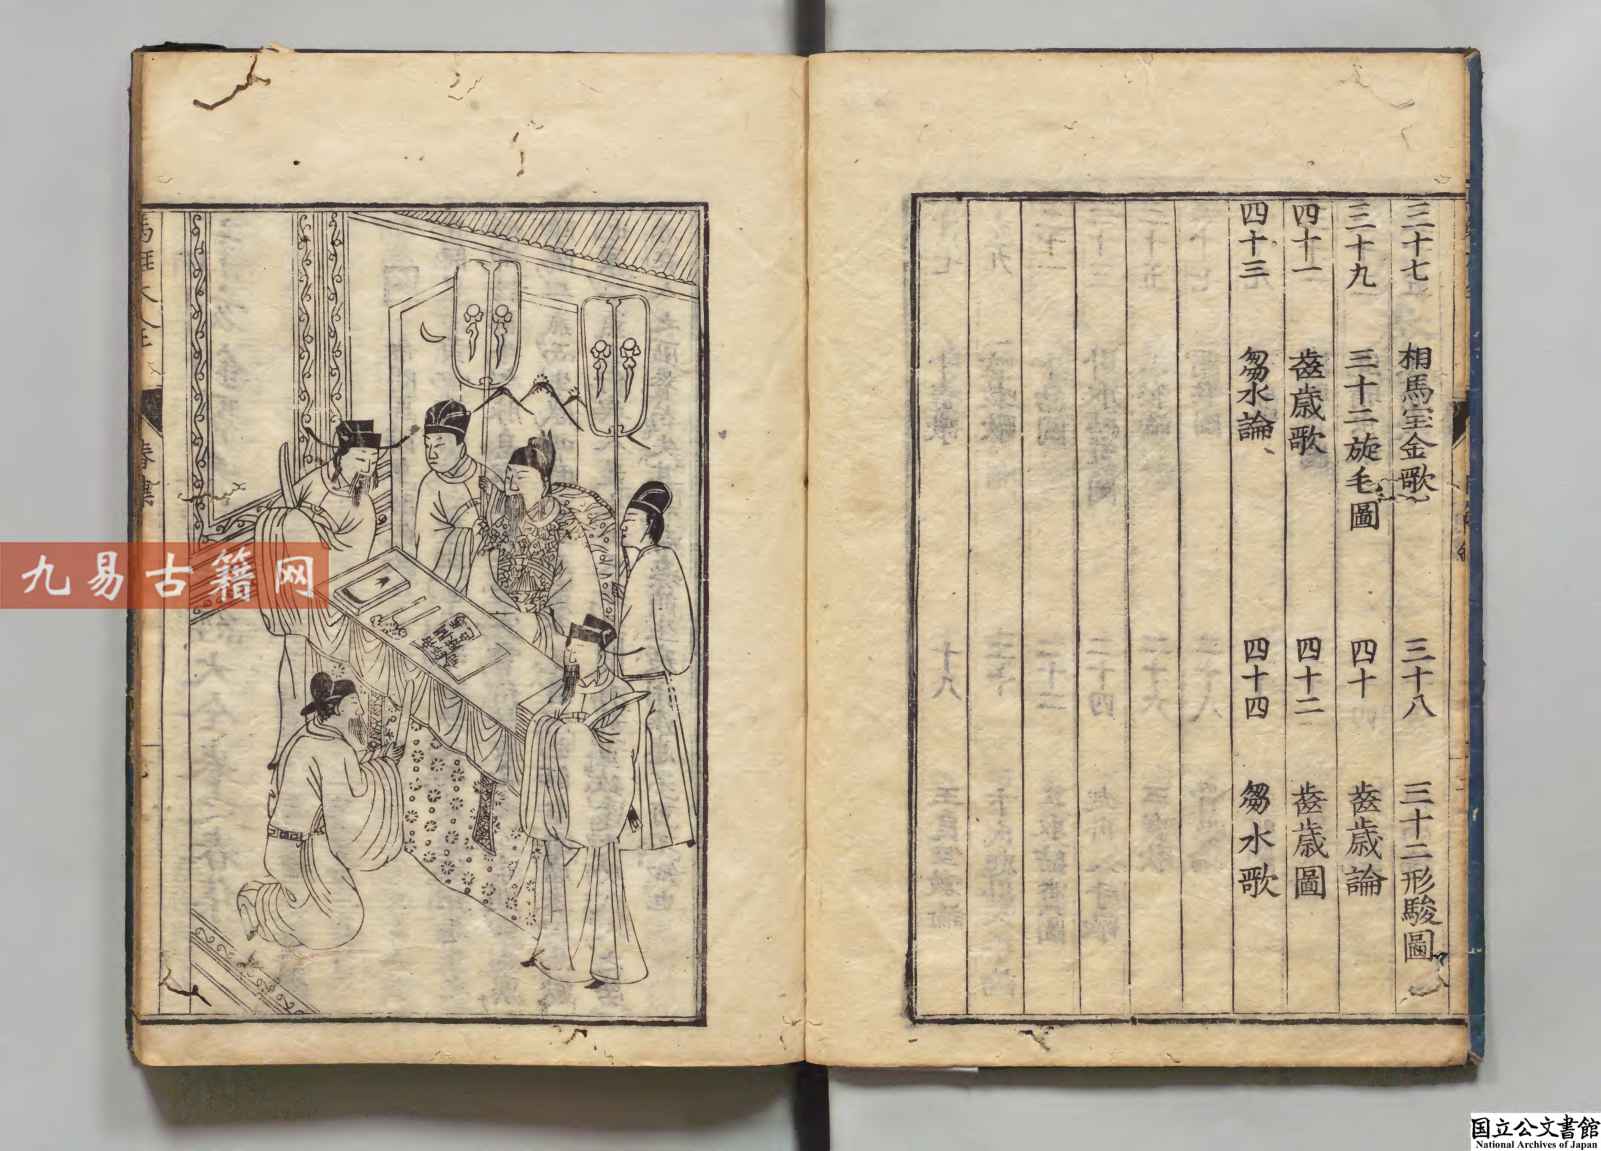 三十七 相馬宝金歌 三十八 三十二形駿圖
三十九 三十二旋毛圖 四十 齒歲論
四十一 齒歲歌 四十二 齒歲圖
四十三 芻水論 四十四 芻水歌
春集
九易古籍网
国立公文書館
National Archives of Japan